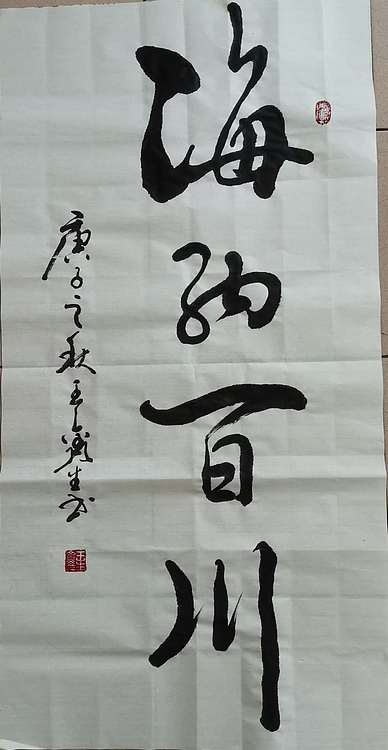 海纳百川
庚子之秋王 生书